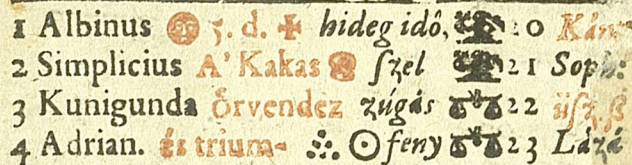 1 Albinus 5. d. hideg idô, 20
2 Simplicius A' Kakas ſzel 21 Soph:
3 Kunigunda örvendez zúgás 22
4 Adrian. és trium- ☉ feny 23 Lázá